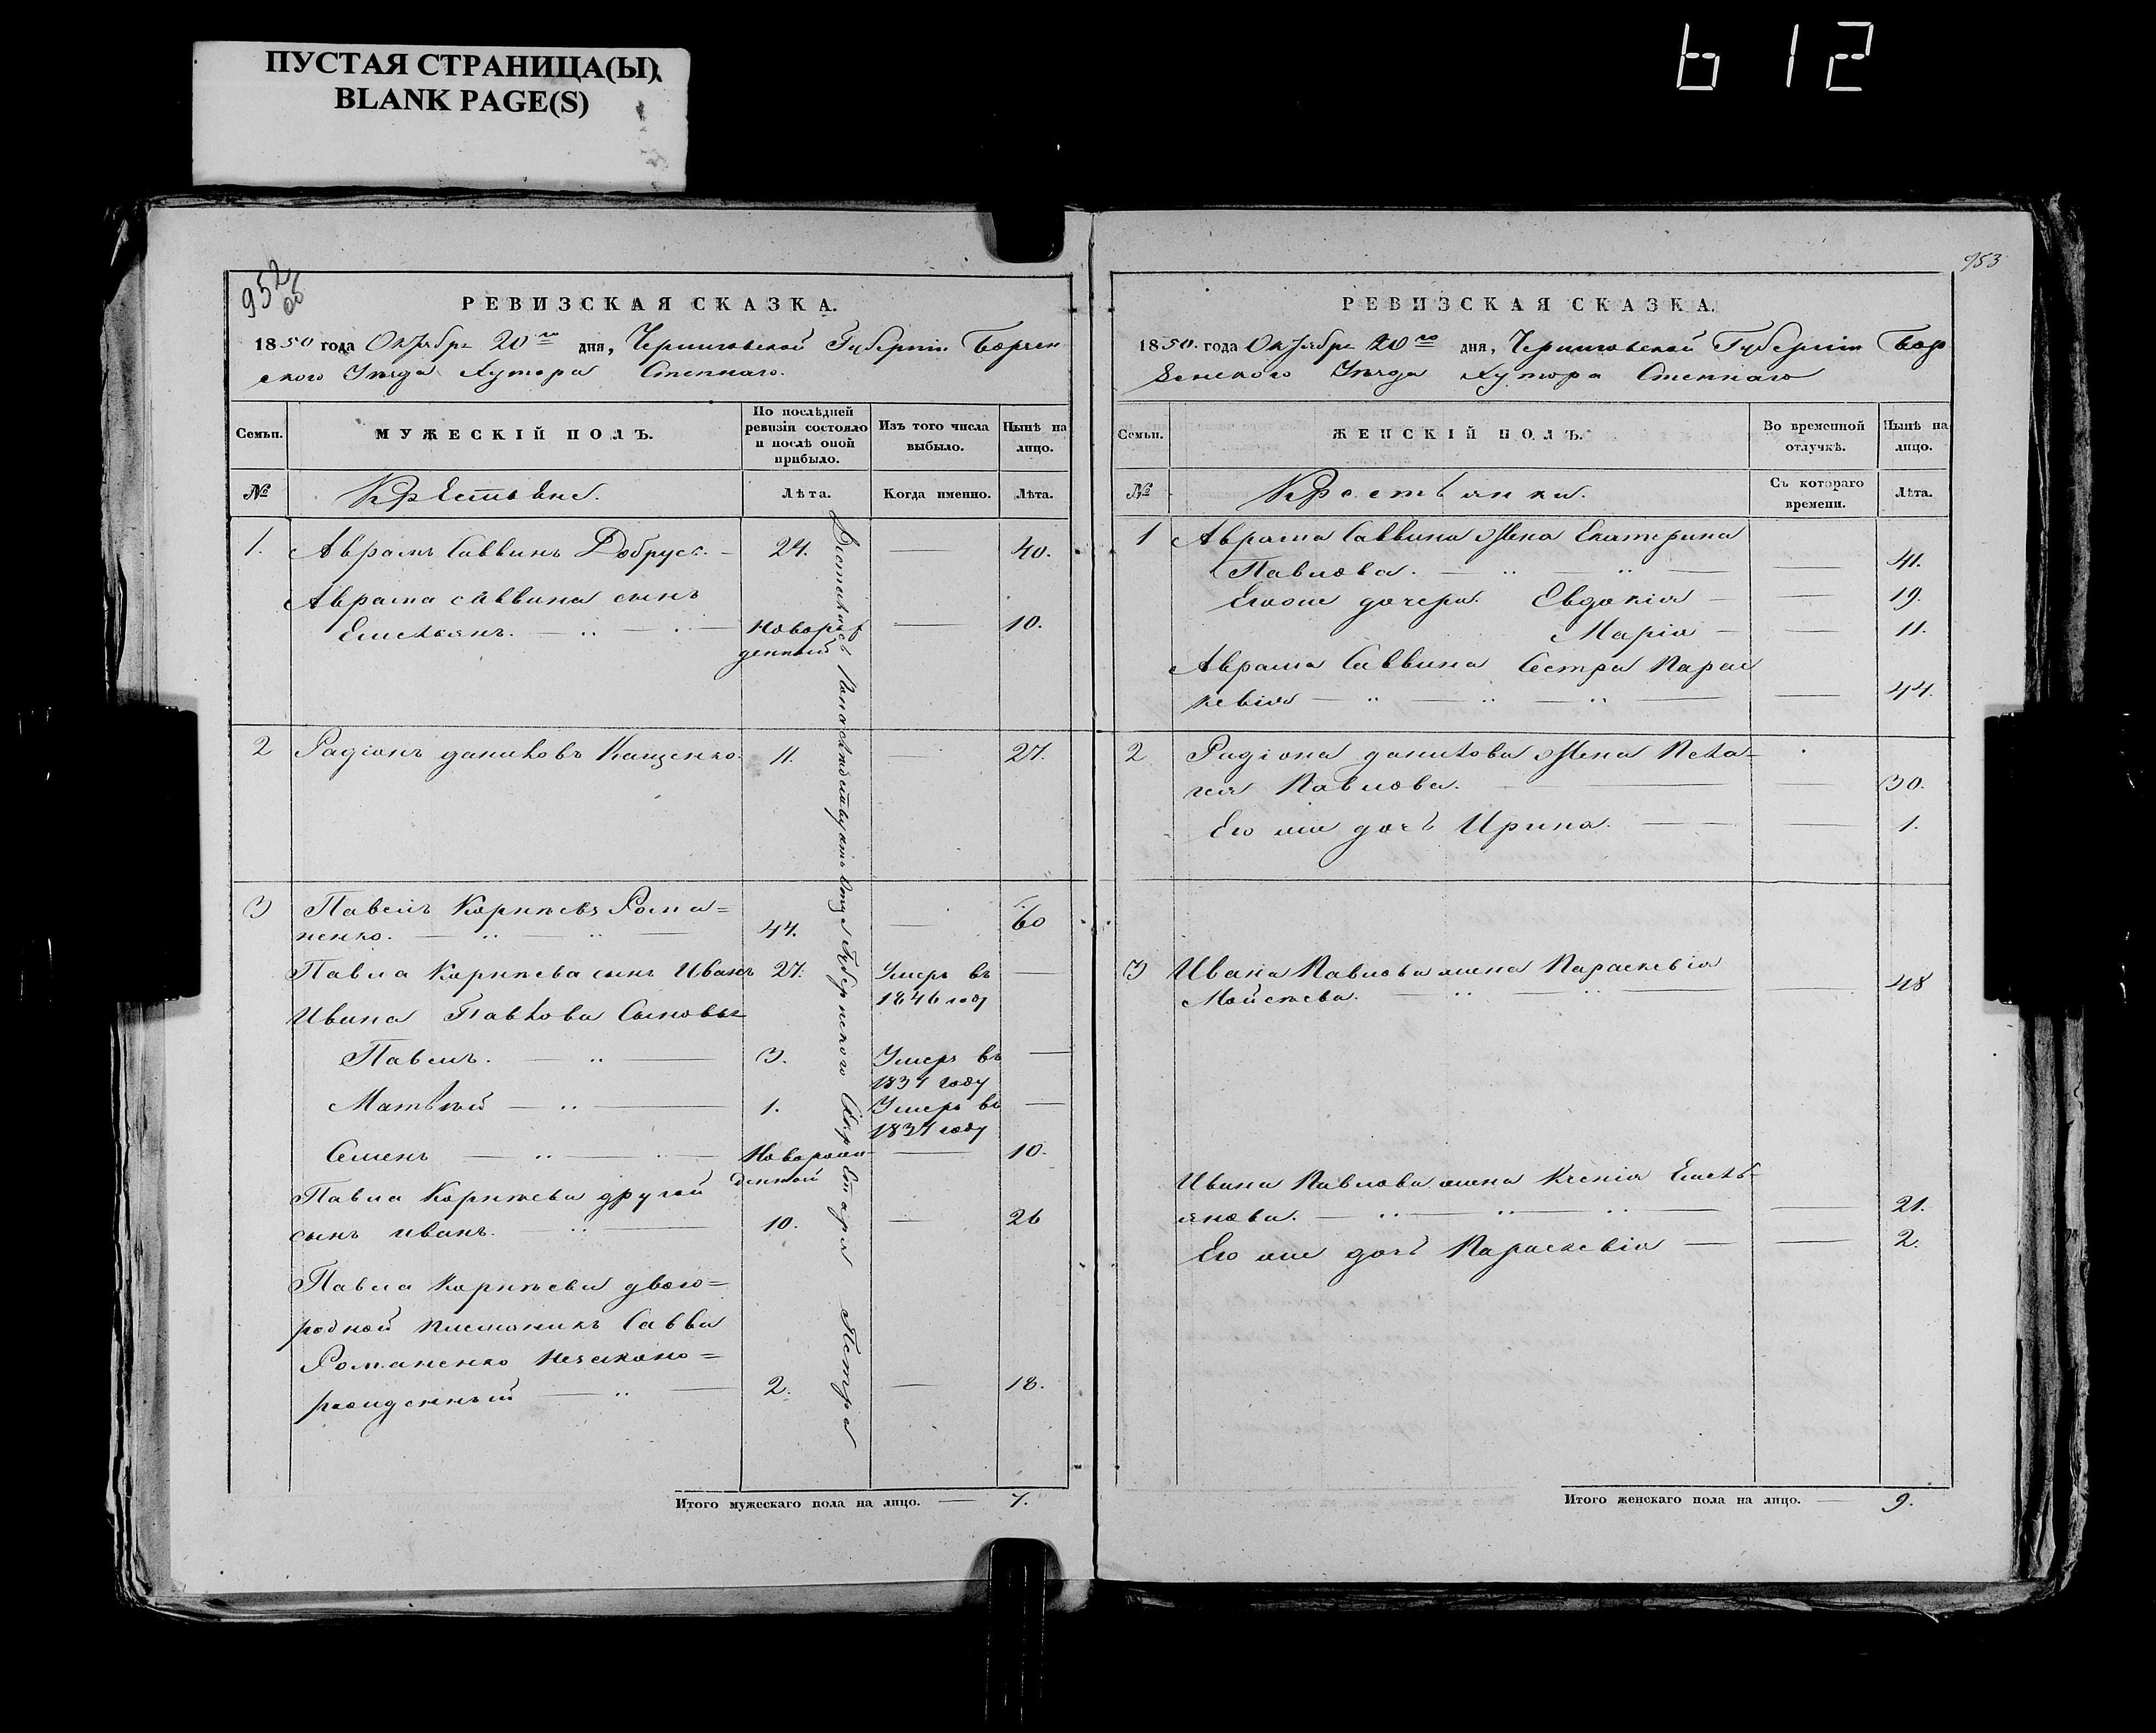 ПУСТАЯ СТРАНИЦА(Ы)
BLANK PAGE(S)
612
952
об
РЕВИЗСКАЯ СКАЗКА.
1850 года Октября 20го дня, Черниговской Губернiи Борзен
ского Уезда Хутора Степнаго.
Семьи.
МУЖЕСКІЙ ПОЛЪ.
По послѣдней ревизіи состояло и послѣ оной прибыло.
Изъ того числа выбыло.
Нынѣ на лицо.
№
Крестьяне.
Лѣта.
Когда именно.
Лѣта.
1. Аврамъ Саввинъ Добруск. 24. 40.
Аврама Саввина сынъ
Емельянъ. Новорож
денный 10.
2 Радіонъ Даниловъ Кащенко. 11. 27.
3 Павелъ Корнѣевъ Рома=
ненко. 44. 60
Павла Корнѣева сынъ Иванъ 27. Умеръ въ
1846 году
Ивана Павлова Сыновья
Павелъ. 3. Умеръ въ
1837 году
Матвѣй 1. Умеръ въ
1837 году
Семенъ Новорож
денной 10.
Павла Корнѣева другой
сынъ Иванъ. 10. 26
Павла Корнѣева двою=
родной племяникъ Савва
Романенко незаконно=
рожденный 2. 18.
Губернского Секретаря Петра
Итого мужескаго пола на лицо. 7.
953
РЕВИЗСКАЯ СКАЗКА.
1850. года Октября 20го дня, Черниговской Губерніи Бор
зенского Уезда Хутора Степнаго
Семьи.
ЖЕНСКІЙ ПОЛЪ.
Во временной отлучкѣ.
Нынѣ на лицо.
№
Крестьянки.
Съ котораго времени.
Лѣта.
1 Аврама Саввина Жена Екатерина
Павлова. 41.
Егоже дочери Евдокія 19.
Марія 11.
Аврама Саввина Сестра Парас
кевія 44.
2 Радіона Данилова Жена Пела=
гея Павлова. 30.
Его же дочь Ирина. 1.
3 Ивана Павлова жена Параскевія
Мойсеева. 48
Ивана Павлова жена Ксенія Емель
янова. 21.
Его же дочь Параскевія 2.
Итого женскаго пола на лицо. 9.